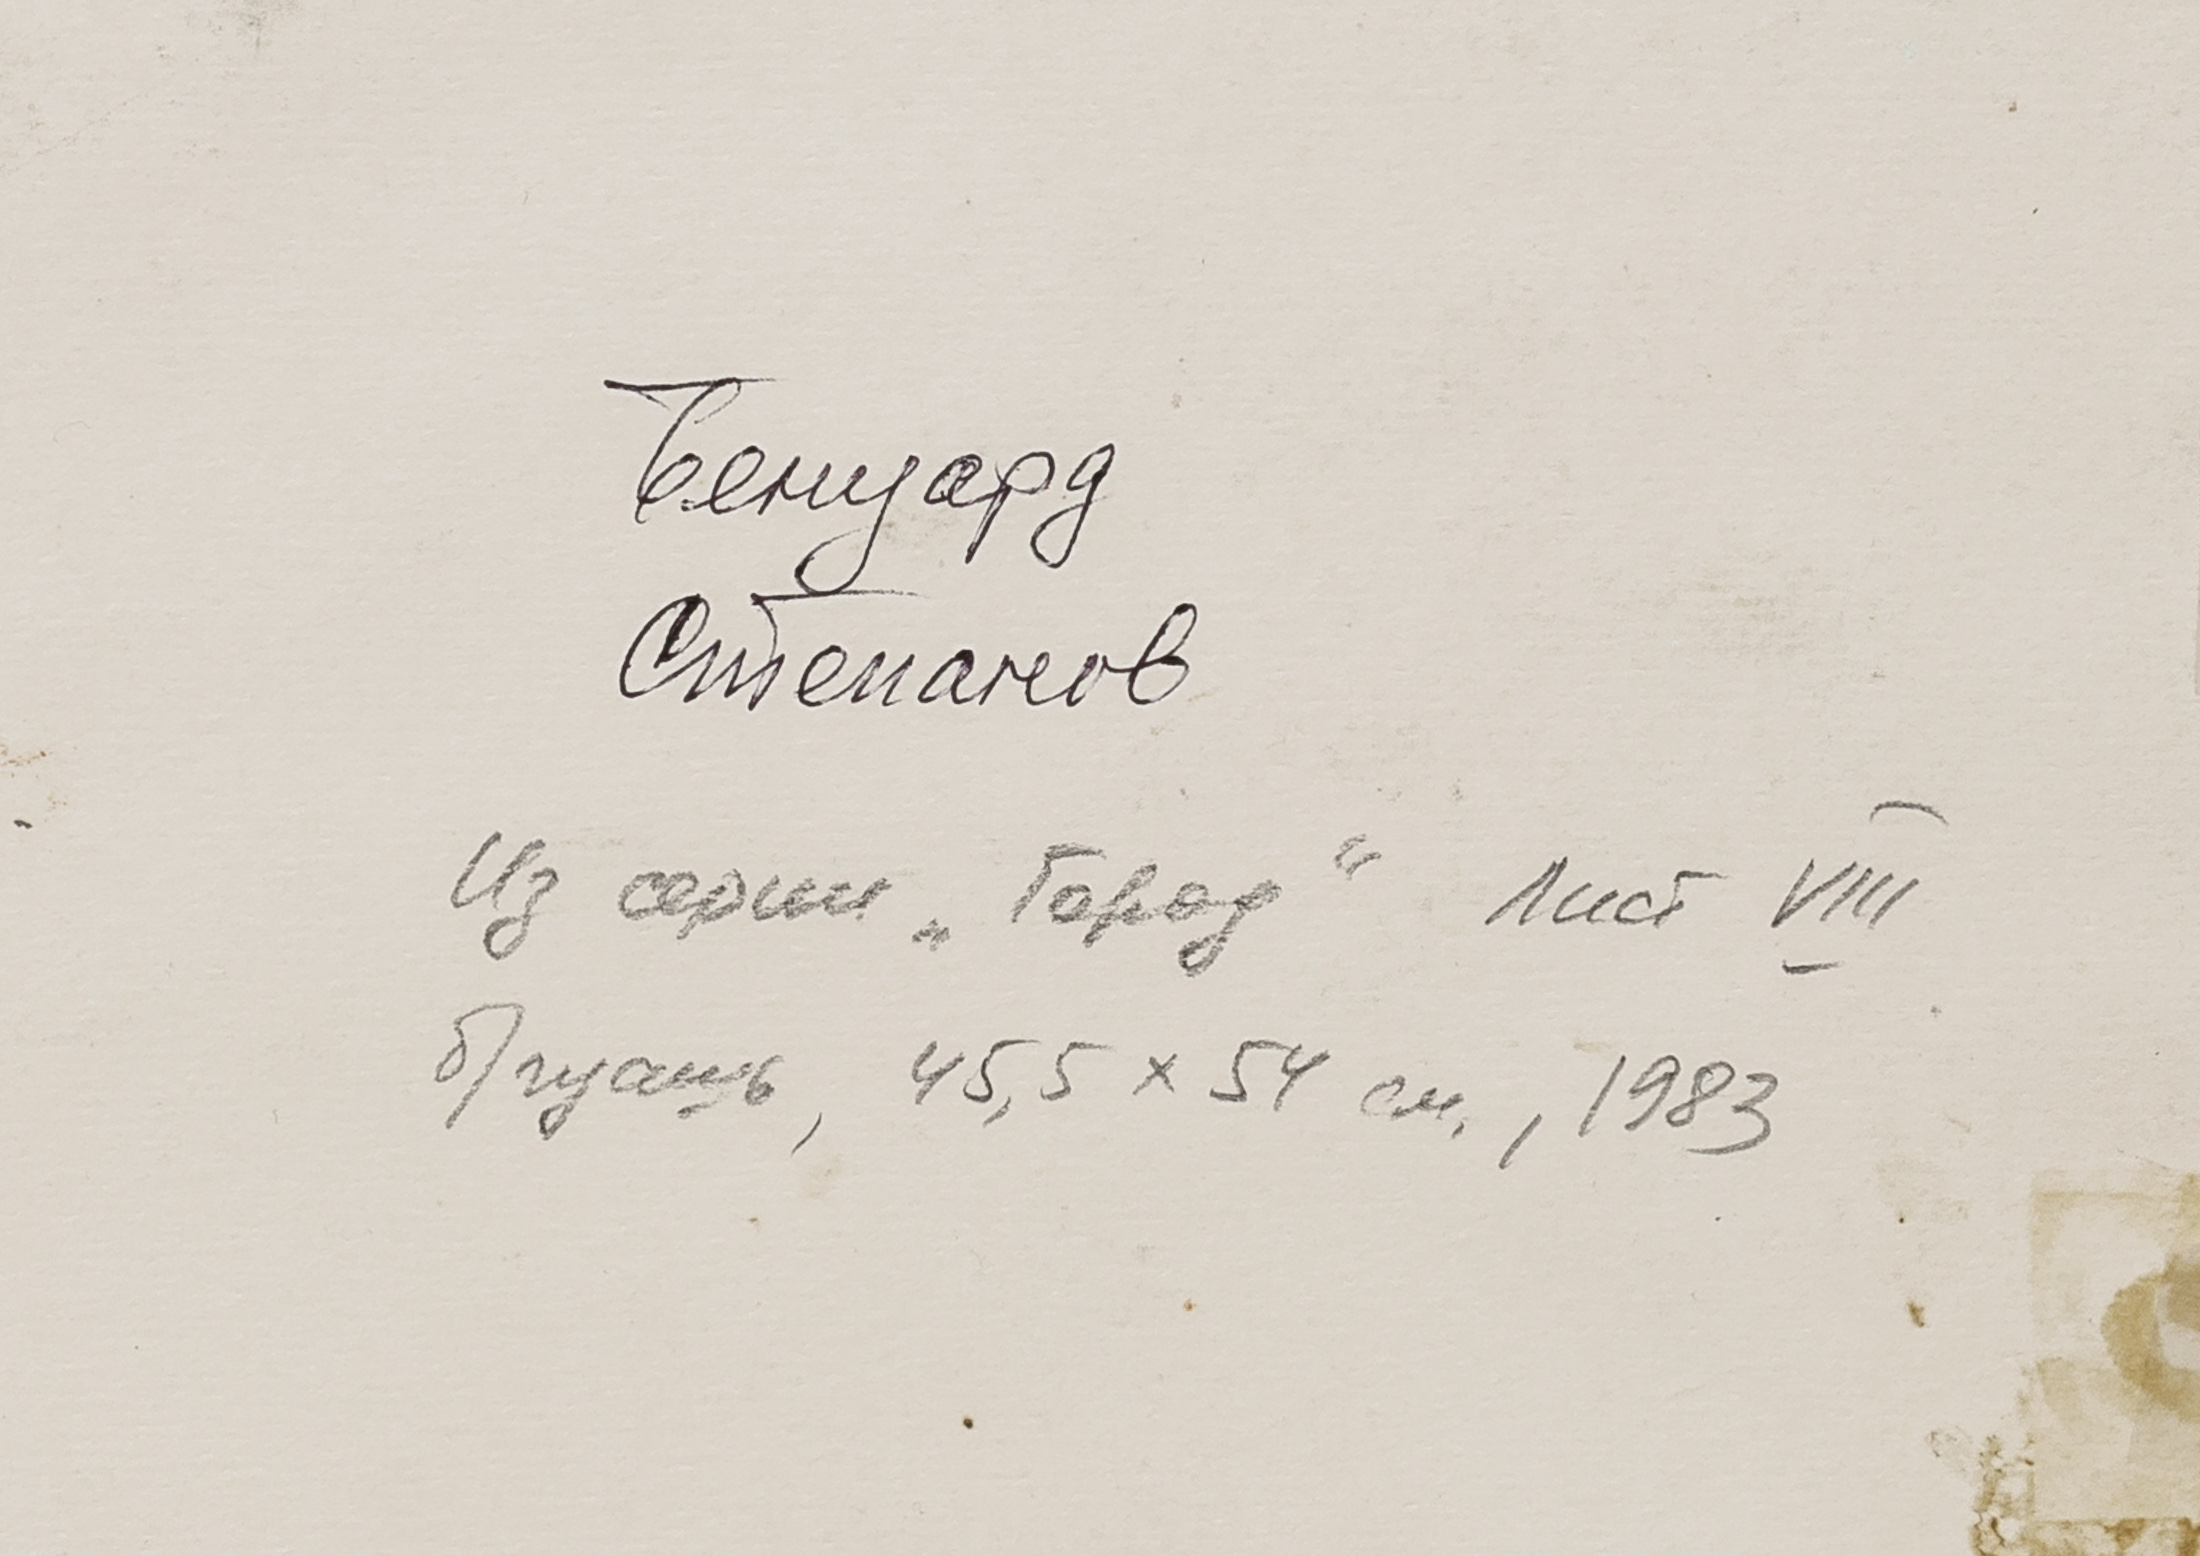 Бенуард
Степанов
Из серии „Город“ Лист VIII
б/гуашь, 45,5 x 54 см., 1983